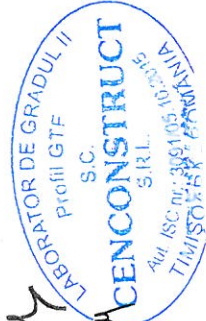 LABORATOR DE GRADUL II
Profil GTF
S.C.
CENCONSTRUCT
S.R.L.
Aut. ISC nr.
TIMIȘOARA - ROMÂNIA